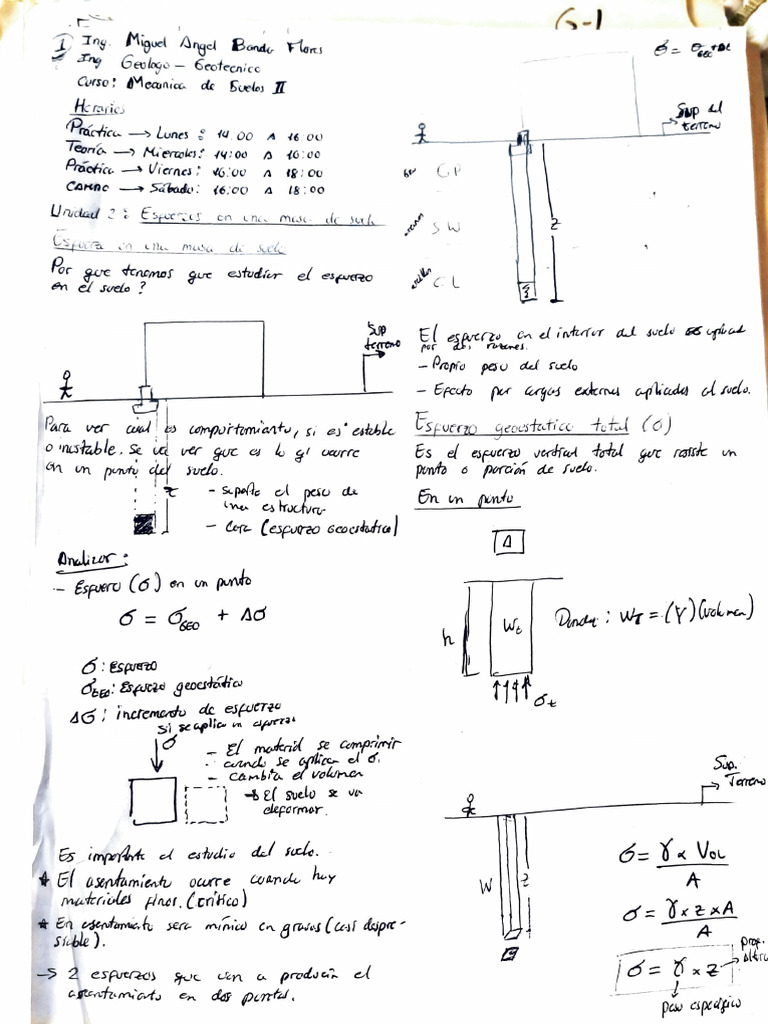 G-1
I
Ing. Miguel Angel Banda Flores
Ing Geologo - Geotecnico
Curso: Mecanica de Suelos II
Horarios
Práctica → Lunes : 14:00 A 16:00
Teoría → Miercoles: 14:00 A 16:00
Práctica → Viernes: 16:00 A 18:00
→ Sábado: 16:00 A 18:00
Unidad 2: Esfuerzos en una masa de suelo
Esfuerzo en una masa de suelo
Por que tenemos que estudiar el esfuerzo
en el suelo?
Sup
terreno
Para ver cual es comportamiento, si es estable
o inestable. Se va ver que es lo q' ocurre
en un punto del suelo.
z
- soporta el peso de
una estructura
- (esfuerzo geoestatico)
Analizar:
- Esfuerzo (σ) en un punto
σ = σGEO + Δσ
σ: Esfuerzo
σGEO: Esfuerzo geoestático
Δσ: incremento de esfuerzo
si se aplica un esfuerzo
σ
- El material se comprimir
cuando se aplica el σ.
- cambia el volumen
→ El suelo se va
deformar.
Es importante el estudio del suelo.
* El asentamiento ocurre cuando hay
materiales finos. (crítico)
* En asentamiento sera mínico en gravas (casi despre-
siable).
→ 2 esfuerzos que van a producir el
asentamiento en dos puntos.
Sup del
terreno
GP
SW
CL
z
El esfuerzo en el interior del suelo es
por dos razones.
- Propio peso del suelo
- Efecto por cargas externas aplicadas al suelo.
Esfuerzo geoestatico total (σ)
Es el esfuerzo vertical total que resiste un
punto o porción de suelo.
En un punto
A
h
Wt
Donde: WT = (γ)(volumen)
σt
Sup.
Terreno
W
z
σ = γ x Vol
A
σ = γ x z x A
A
σ = γ x z
prof.
peso especifico